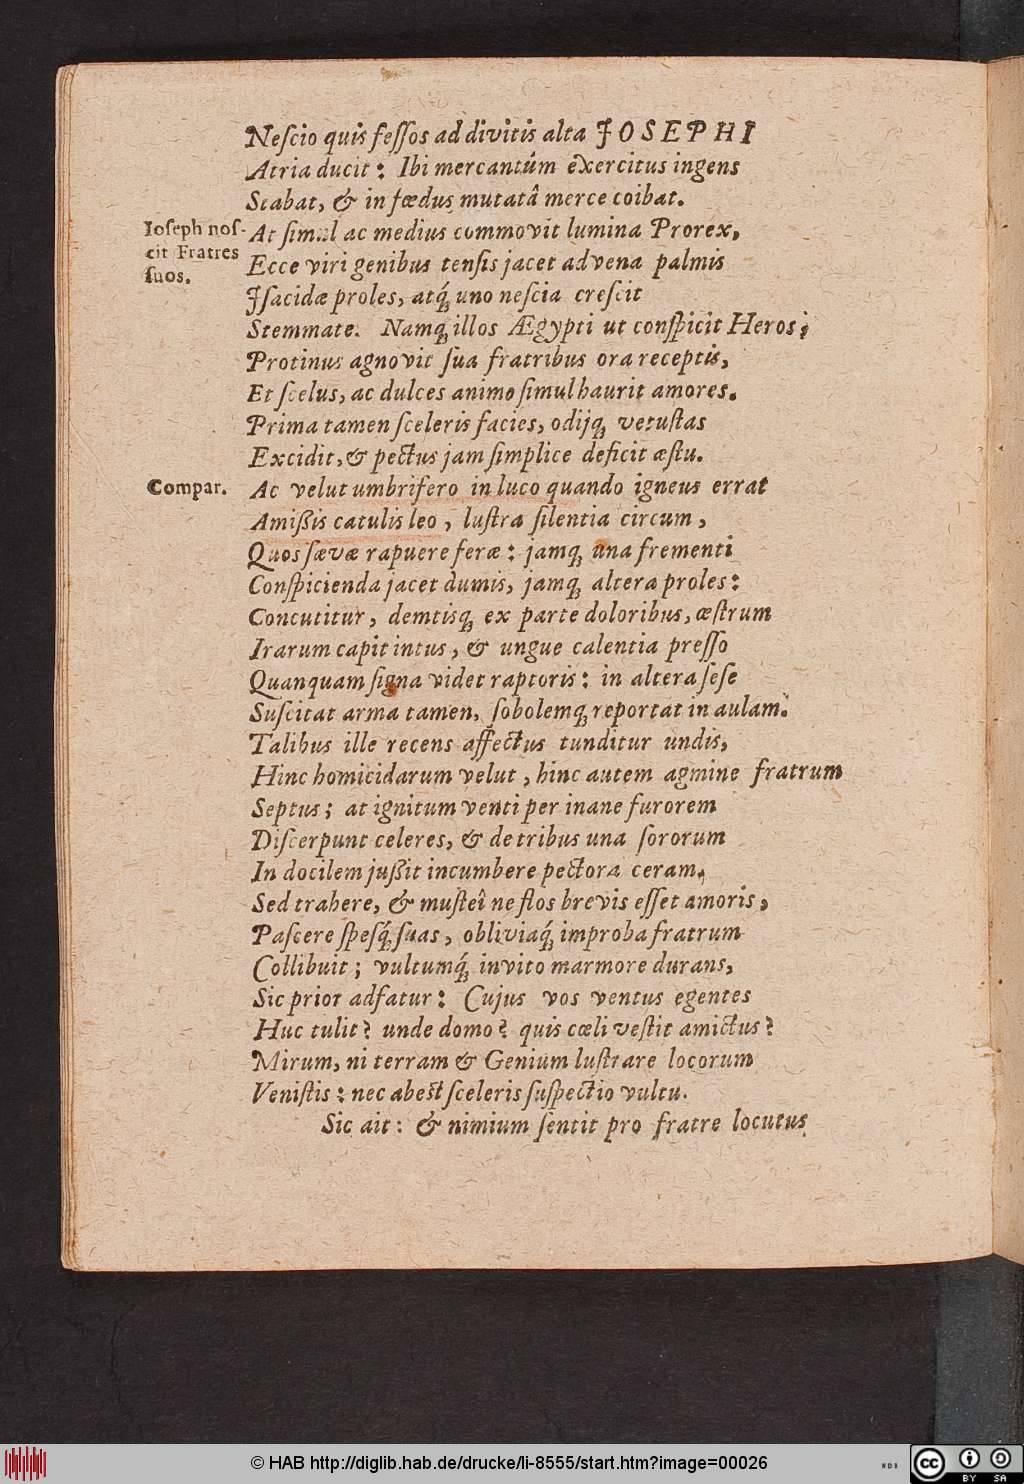 Neſcio quis feſſos ad divitis alta JOSEPHI
Atria ducit: Ibi mercantûm exercitus ingens
Stabat, & in fœdus mutatâ merce coibat.
Ioſeph noſ-
cit Fratres
ſuos.
At ſimul ac medius commovit lumina Prorex,
Ecce viri genibus tenſis jacet advena palmis
Jſacidæ proles, atq́; uno neſcia creſcit
Stemmate. Namq; illos Ægypti ut conſpicit Heros;
Protinus agnovit ſua fratribus ora receptis,
Et ſcelus, ac dulces animo ſimul haurit amores.
Prima tamen ſceleris facies, odijq; vetuſtas
Excidit, & pectus jam ſimplice deficit æſtu.
Compar.
Ac velut umbrifero in luco quando igneus errat
Amißis catulis leo, luſtra ſilentia circum,
Quos ſævæ rapuere feræ: jamq; una frementi
Conſpicienda jacet dumis, jamq; altera proles:
Concutitur, demtisq; ex parte doloribus, œſtrum
Irarum capit intus, & ungue calentia preſſo
Quanquam ſigna videt raptoris: in altera ſeſe
Suſcitat arma tamen, ſobolemq; reportat in aulam.
Talibus ille recens affectus tunditur undis,
Hinc homicidarum velut, hinc autem agmine fratrum
Septus; at ignitum venti per inane furorem
Diſcerpunt celeres, & de tribus una ſororum
In docilem jußit incumbere pectora ceram.
Sed trahere, & muſteî ne flos brevis eſſet amoris,
Paſcere ſpeſq́; ſuas, obliviaq́; improba fratrum
Collibuit; vultumq́; invito marmore durans,
Sic prior adfatur: Cujus vos ventus egentes
Huc tulit? unde domo? quis cœli veſtit amictus?
Mirum, ni terram & Genium luſtrare locorum
Veniſtis: nec abeſt ſceleris ſuſpectio vultu.
Sic ait: & nimium ſentit pro fratre locutus
© HAB http://diglib.hab.de/drucke/li-8555/start.htm?image=00026
WDB
CC BY SA